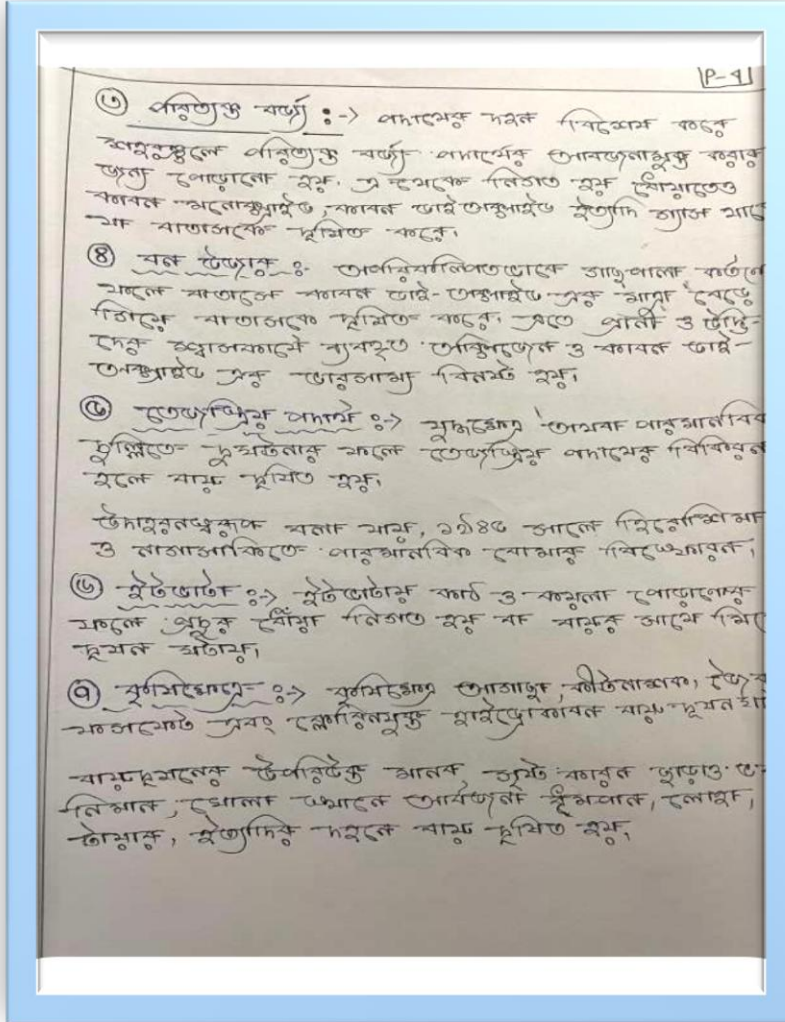 P-4
③ পরিত্যক্ত বর্জ্য :-> পদার্থের দহন বিশেষ করে
শহরাঞ্চলে পরিত্যক্ত বর্জ্য পদার্থের আবর্জনামুক্ত করার
জন্য পোড়ানো হয়. এ থেকে নির্গত হয় ধোঁয়াতেও
কার্বন মনোক্সাইড, কার্বন ডাই অক্সাইড ইত্যাদি গ্যাস থাকে
যা বাতাসকে দূষিত করে।
④ বন উজার :- অপরিকল্পিতভাবে গাছপালা কর্তনে
ফলে বাতাসে কার্বন ডাই-অক্সাইড এর মাত্রা বেড়ে
গিয়ে বাতাসকে দূষিত করে. এতে প্রাণী ও উদ্ভি-
দের শ্বাসকার্যে ব্যবহৃত অক্সিজেন ও কার্বন ডাই-
অক্সাইড এর ভারসাম্য বিনষ্ট হয়।
⑤ তেজস্ক্রিয় পদার্থ :-> যুদ্ধক্ষেত্র অথবা পারমানবিক
চুল্লিতে দুর্ঘটনার ফলে তেজস্ক্রিয় পদার্থের বিকিরন
হলে বায়ু দূষিত হয়।
উদাহরনস্বরূপ বলা যায়, ১৯৪৫ সালে হিরোশিমা
ও নাগাসাকিতে পারমানবিক বোমার বিস্ফোরন।
⑥ ইটভাটা :-> ইটভাটায় কাঠ ও কয়লা পোড়ানোর
ফলে প্রচুর ধোঁয়া নির্গত হয় বা বায়ুর সাথে মিশে
দূষন ঘটায়।
⑦ কৃষিক্ষেত্র :-> কৃষিক্ষেত্র আগাছা, কীটনাশক, জৈব
ফসফেট এবং ক্লোরিনযুক্ত হাইড্রোকার্বন বায়ু দূষন
বায়ুদূষনের উপরিউক্ত মানব সৃষ্ট কারন ছাড়াও
খোলা স্থানে আবর্জনা ধূমপান, লোহা,
টায়ার, ইত্যাদির দহনে বায়ু দূষিত হয়.